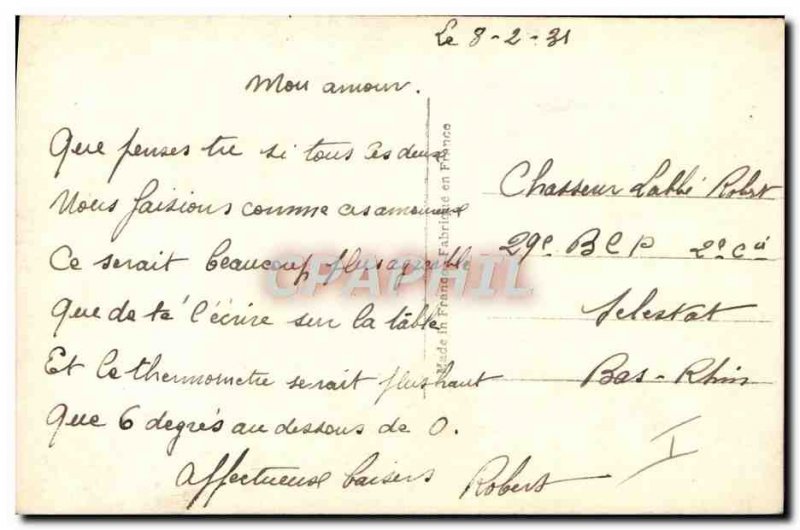 Le 8-2-31
Mon amour.
Que penses tu si tous les deux
Nous faisions comme ces amoureux
Ce serait beaucoup plus agréable
Que de te l'écrire sur la table
Et le thermometre serait plus haut
Que 6 degrés au dessous de 0.
affectueux baisers Robert
Made in France - Fabriqué en France
Chasseur Labbé Robert
29e B C P 2e Cie
Selestat
Bas-Rhin
I
CPAPHIL